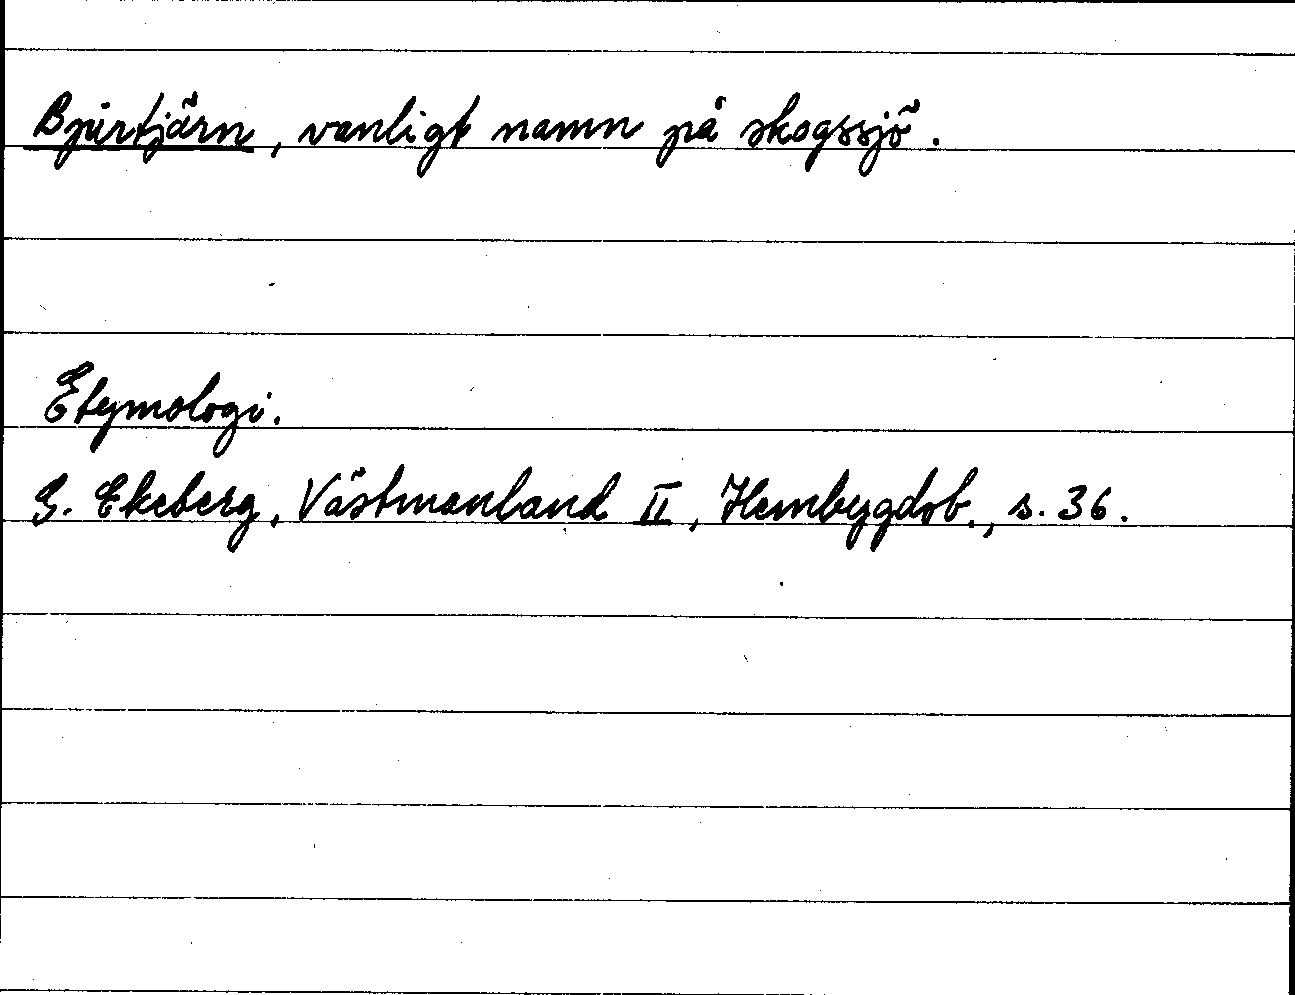 Bjurtjärn, vanligt namn på skogssjö.
Etymologi.
G. Ekeberg, Västmanland II, Hembygdsb., s. 36.